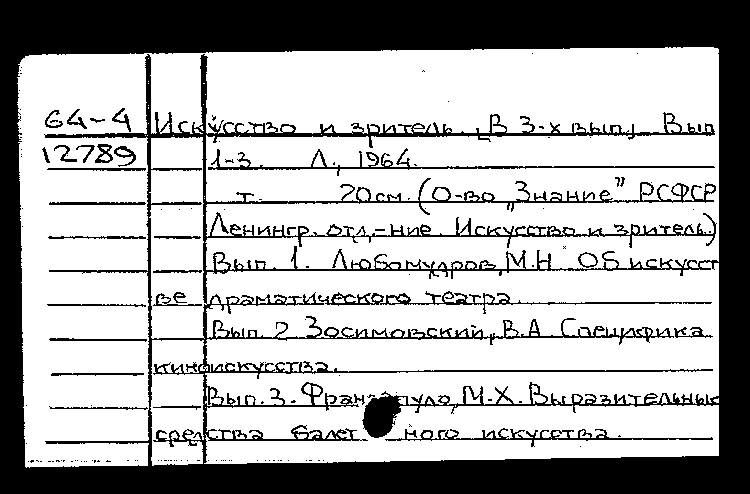 64-4 Искусство и зритель. [В 3-х вып.] Вып
12789 1-3. Л., 1964.
т. 20см. (О-во „Знание" РСФСР
Ленингр. отд-ние. Искусство и зритель.)
Вып. 1. Любомудров, М.Н Об искусст
ве драматического театра.
Вып. 2 Зосимовский, В.А Специфика
киноискусства.
Вып. 3. М.Х. Выразительные
средства балетного искусства.